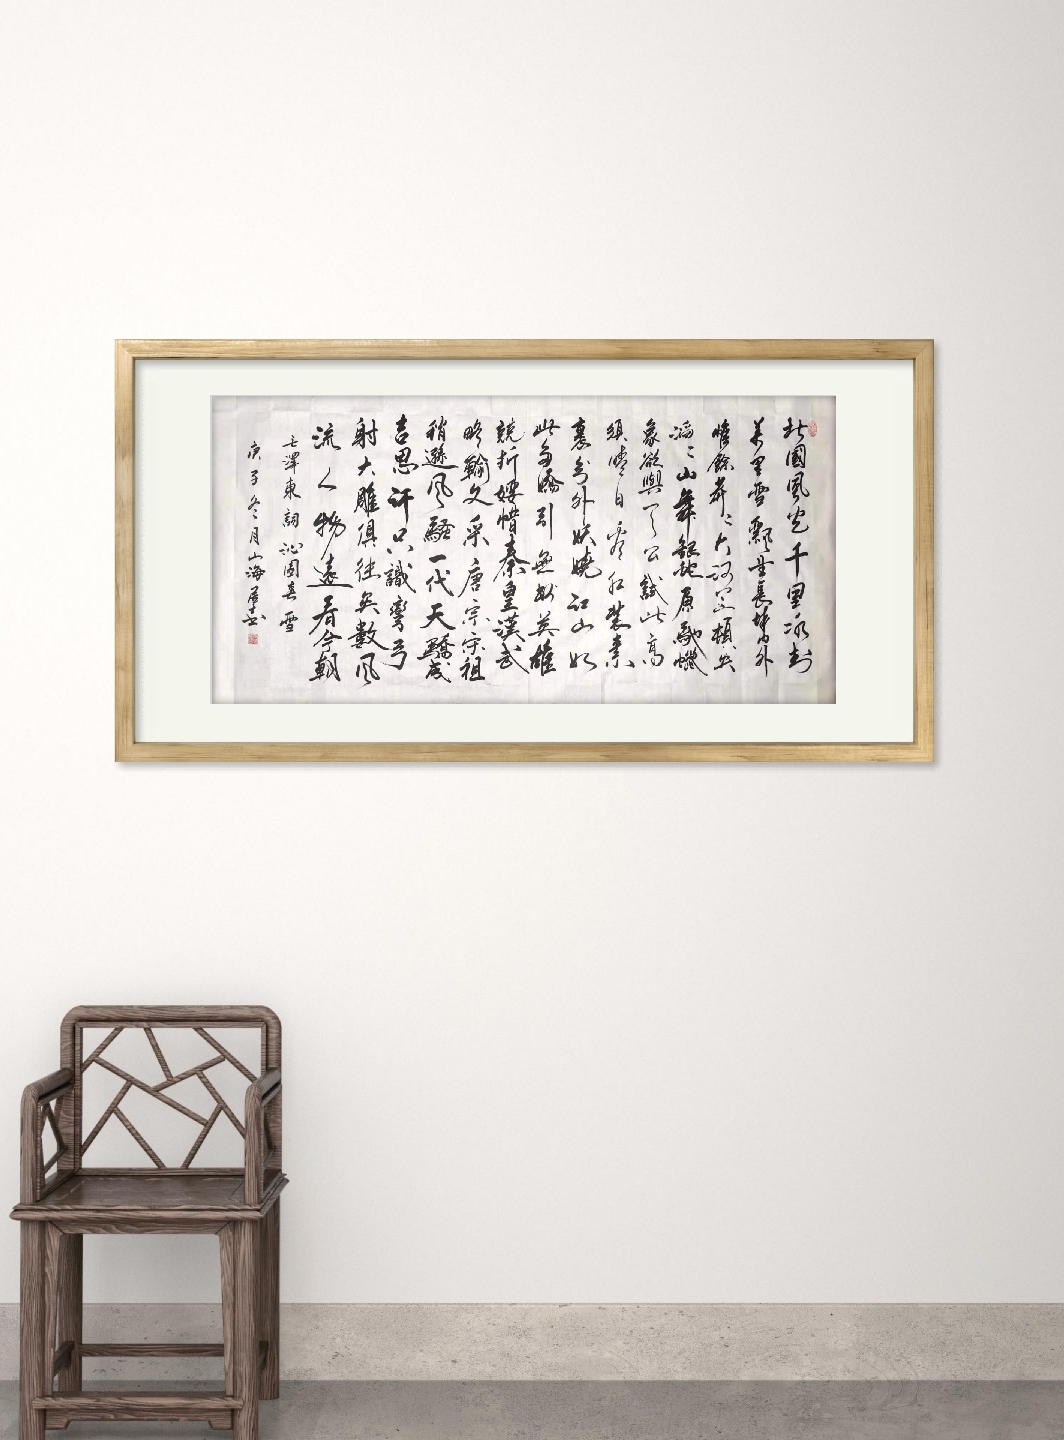 北國風光千里冰封
萬里雪飄望長城内外
惟餘莽〻大河上下頓失
滔〻山舞銀蛇原馳蠟
象欲與天公試比高
須晴日看紅裝素
裹分外妖嬈江山如
此多嬌引無數英雄
競折腰惜秦皇漢武
略輸文采唐宗宋祖
稍遜風騷一代天驕成
吉思汗只識彎弓
射大雕俱往矣數風
流人物還看今朝
毛澤東詞沁園春雪
庚子冬月山海居